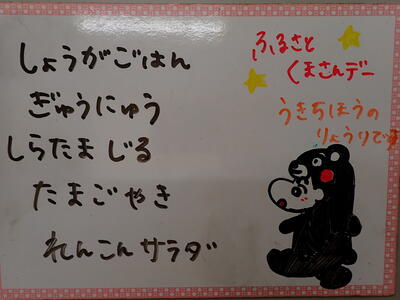 しょうがごはん
ぎゅうにゅう
しらたまじる
たまごやき
れんこんサラダ
ふるさと
くまさんデー
うきちほうの
りょうりです